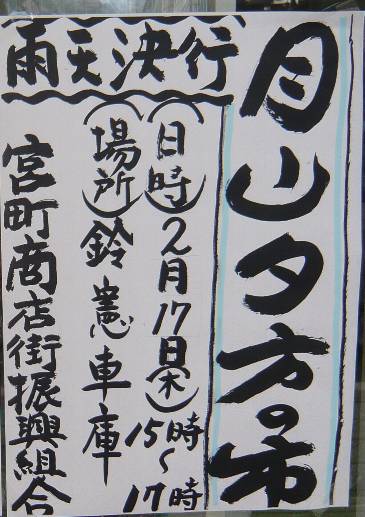 月山夕方の市
雨天決行
(日時)2月17日(木)
15時〜
17時
(場所)鈴憲車庫
宮町商店街振興組合